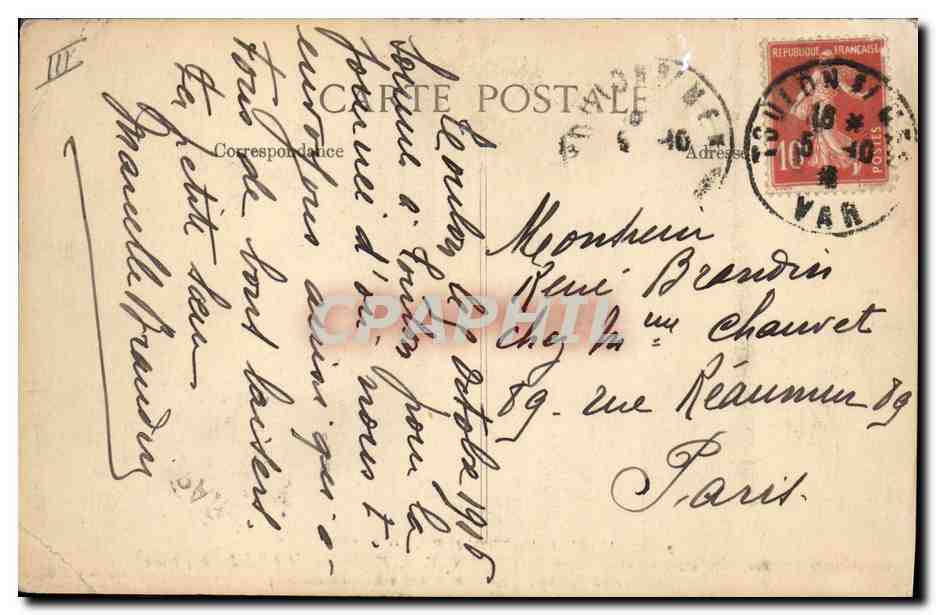 III
CARTE POSTALE
Correspondance
Adresse
REPUBLIQUE FRANÇAISE
10
POSTES
TOULON S/ MER
16 *
5 -10
VAR
TOULON S/ MER
5 -10
Toulon le octobre 1916
Sommes à Toulon pour la
journée d'où nous t'
envoyons ainsi qu'à
tous de bons baisers.
Ta petite sœur
Marcelle Brandin
Monsieur
René Brandin
chez Mme Chauvet
89 - rue Réaumur 89
Paris.
CPAPHIL